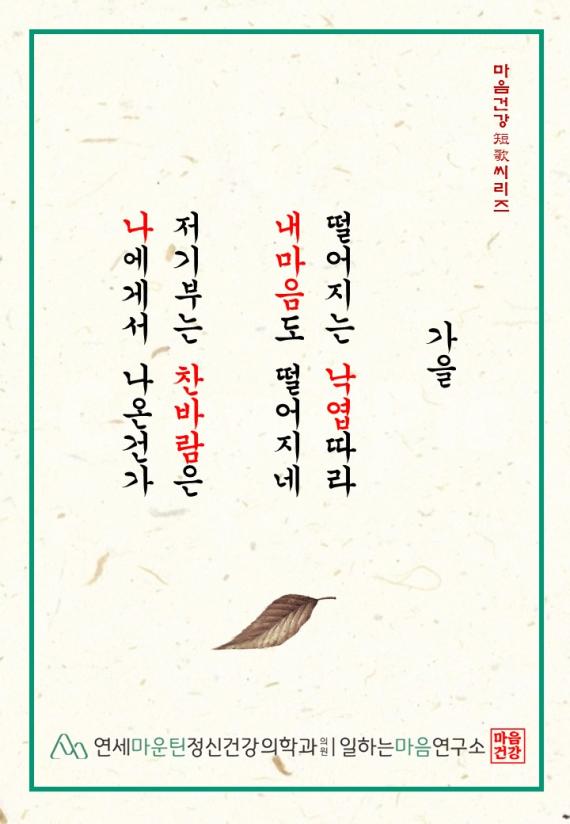 마음건강 短歌 씨리즈
가을
떨어지는 낙엽따라
내마음도 떨어지네
저기부는 찬바람은
나에게서 나온건가
연세마운틴정신건강의학과의원 | 일하는마음연구소
마음
건강